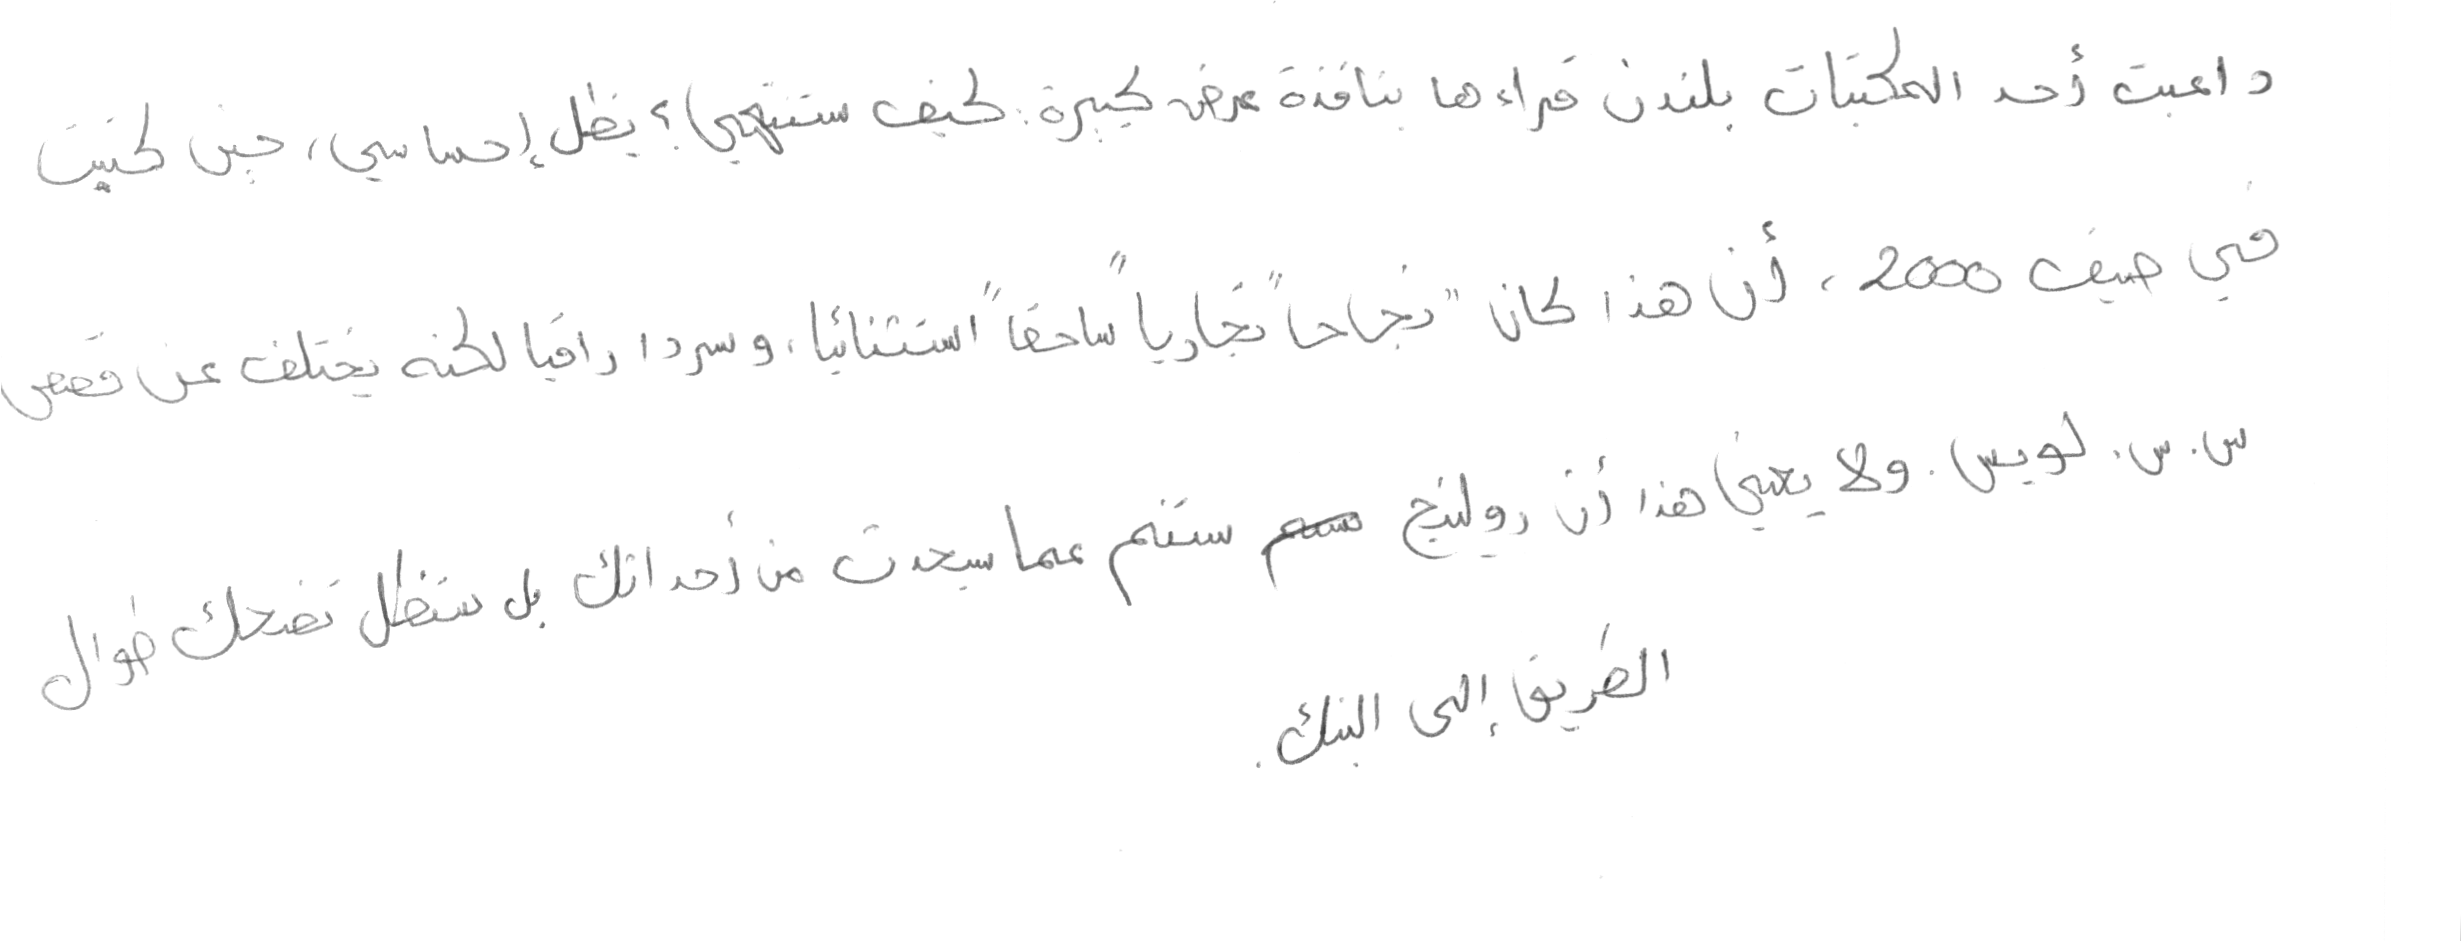 داعبت أحد المكتبات بلندن قراءها بنافذة عرض كبيرة: كيف ستنتهي؟ يظل إحساسي، حين كتبت
في صيف 2000، أن هذا كان "نجاحاً تجارياً ساحقاً" استثنائيا، وسردا راقيا لكنه يختلف عن قصص
س. س. لويس. ولا يعني هذا أن رولينج ستنم عما سيحدث من أحداثك بل ستظل تضحك طوال
الطريق إلى البنك.